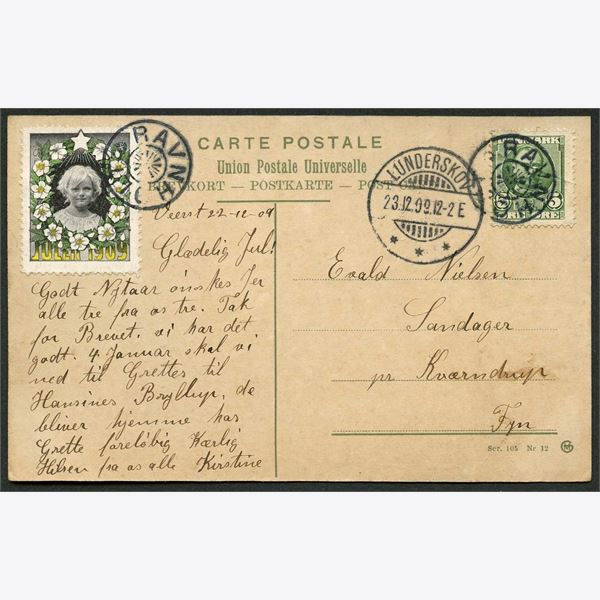 CARTE POSTALE
Union Postale Universelle
BREVKORT — POSTKARTE — POST CARD
JULEN 1909
RAVNH
LUNDERSKOV
23.12.09.12-2 E
RAVNH
DANMARK
5 ØRE
Veerst 22-12-09
Glædelig Jul!
Godt Nytaar ønskes Jer
alle tre fra os tre. Tak
for Brevet, vi har det
godt. 4 Januar skal vi
ned til Grettes til
Hansines Bryllup, de
bliver hjemme hos
Grette foreløbig Kærlig
Hilsen fra os alle Kirstine
Evald Nielsen
Sandager
pr Kværndrup
Fyn
Ser. 105 Nr 12